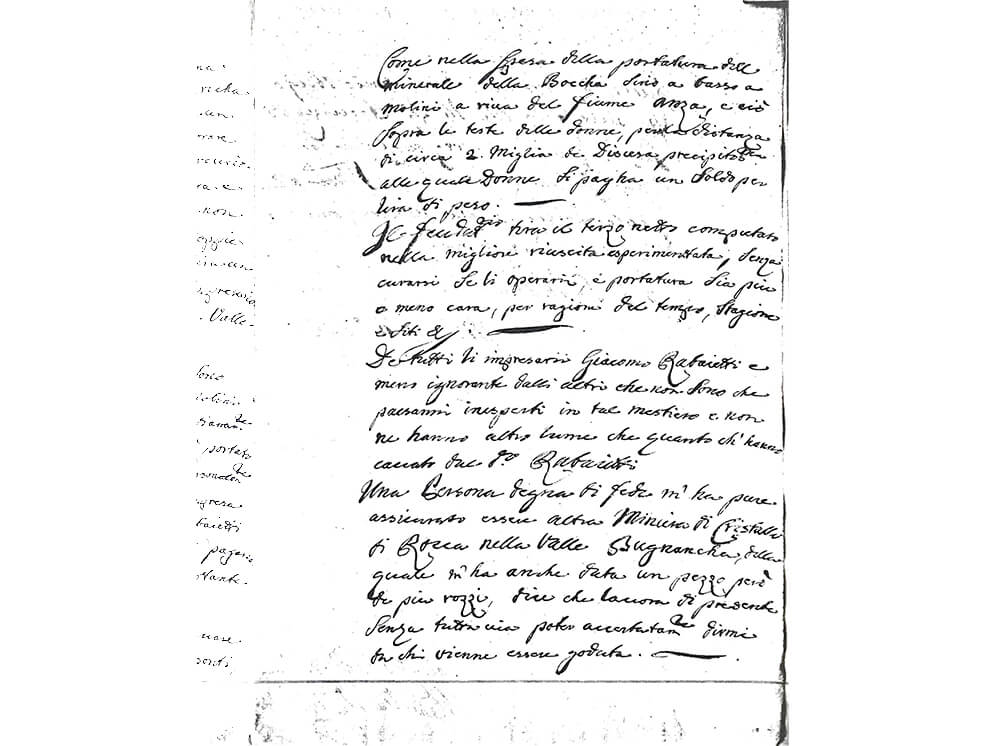 Come nella spesa della portatura dell
minerale della Boccha sino a basso a
molini a riva del fiume Anza, e ciò
sopra le teste delle donne, per la distanza
di circa 2. Miglia de Discesa precipitosa
alle quale Donne si pagha un soldo per
lira di peso.
Il feudat.rio tira il terzo netto computato
nella migliore riuscita esperimentata, senza
curarsi se li operarii, e portatura sia più
o meno cara, per ragioni del tempo, stagione
e siti &
De tutti li impresarii Giacomo Rabaietti e
meno ignorante dalli altri che non sono che
paesanni inesperti in tal mestiero e non
ne hanno altro lume che quanto ch' hanno
cavato dal d.o Rabaietti
Una Persona degna di fede m' ha pure
assicurato essere altra Miniera di Cristallo
di Rocca nella Valle Bugnancha, della
quale m' ha anche data un pezzo però
de più rozzi, dice che lavora di presente
senza tuttavia poter accertatam.te dirmi
da chi vienne essere goduta.
na:
richa.
ra. e.
non
Valle.
sono
portato
baietti
pagarsi